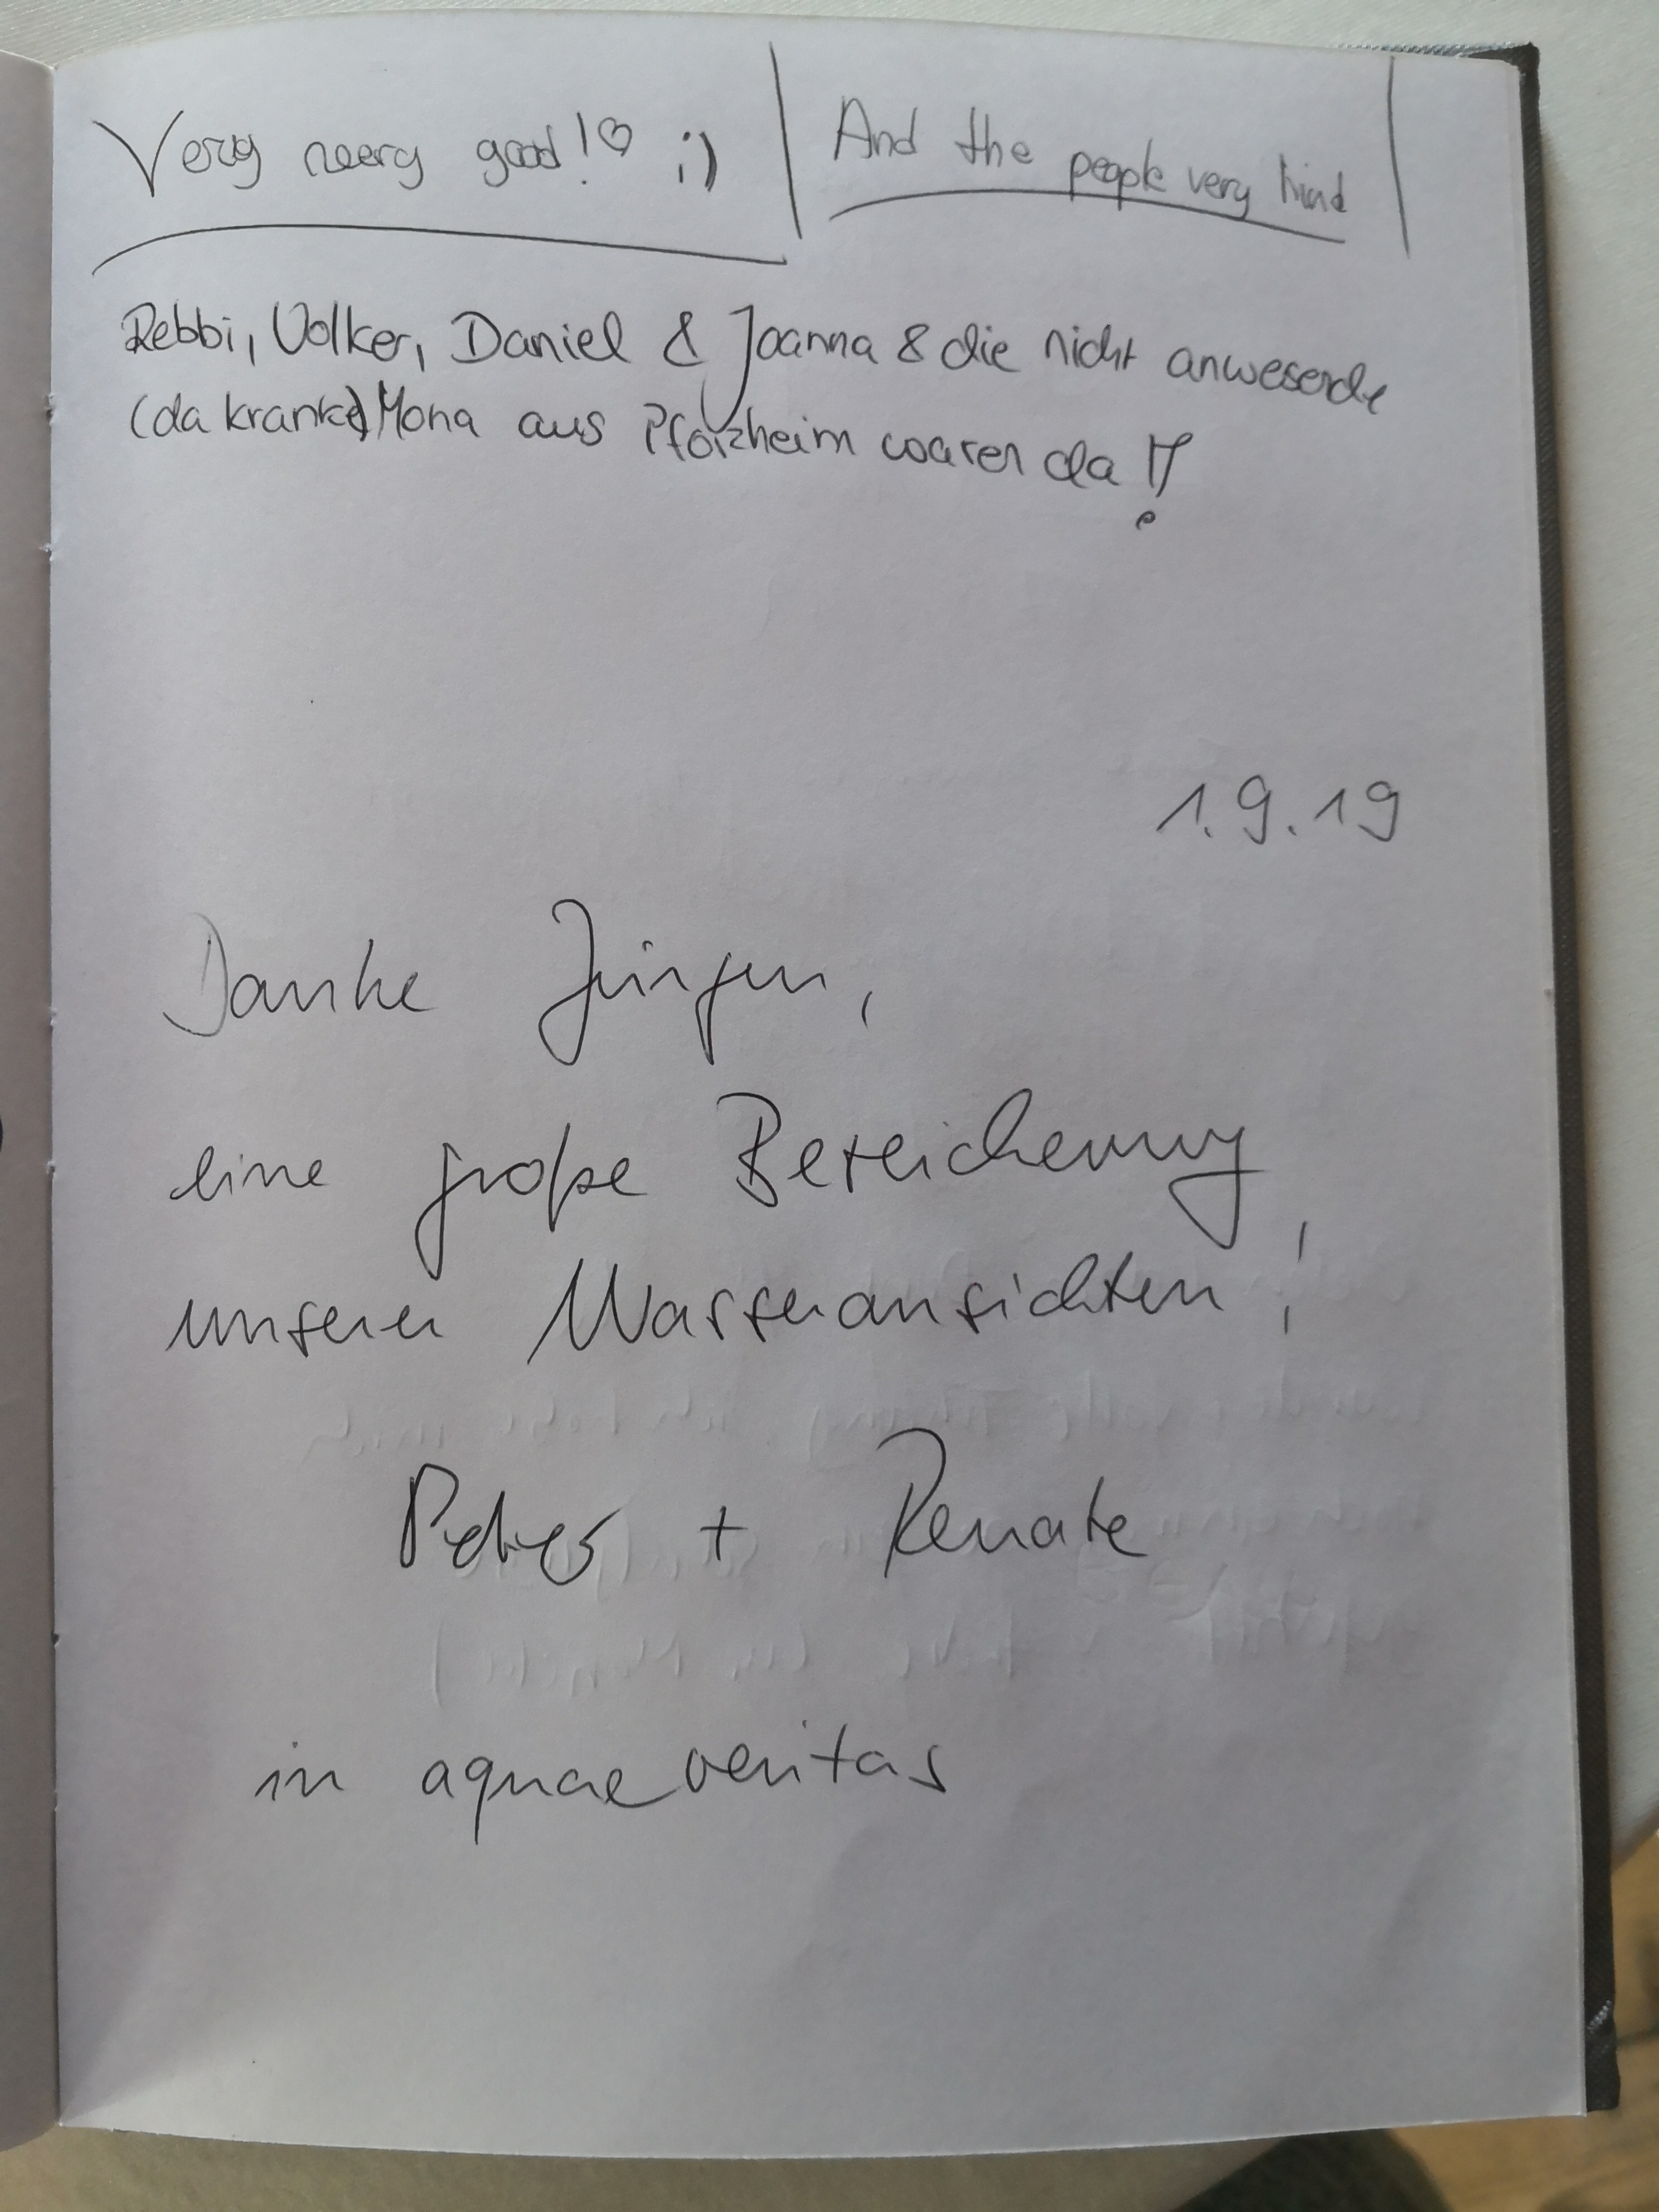 Very veery good!♡ ;)
And the people very kind
Rebbi, Volker, Daniel & Joanna & die nicht anwesende
(da kranke) Mona aus Pforzheim waren da!!
1.9.19
Danke Jürgen,
eine große Bereicherung
unserer Wasseransichten!
Peter + Renate
in aquae veritas